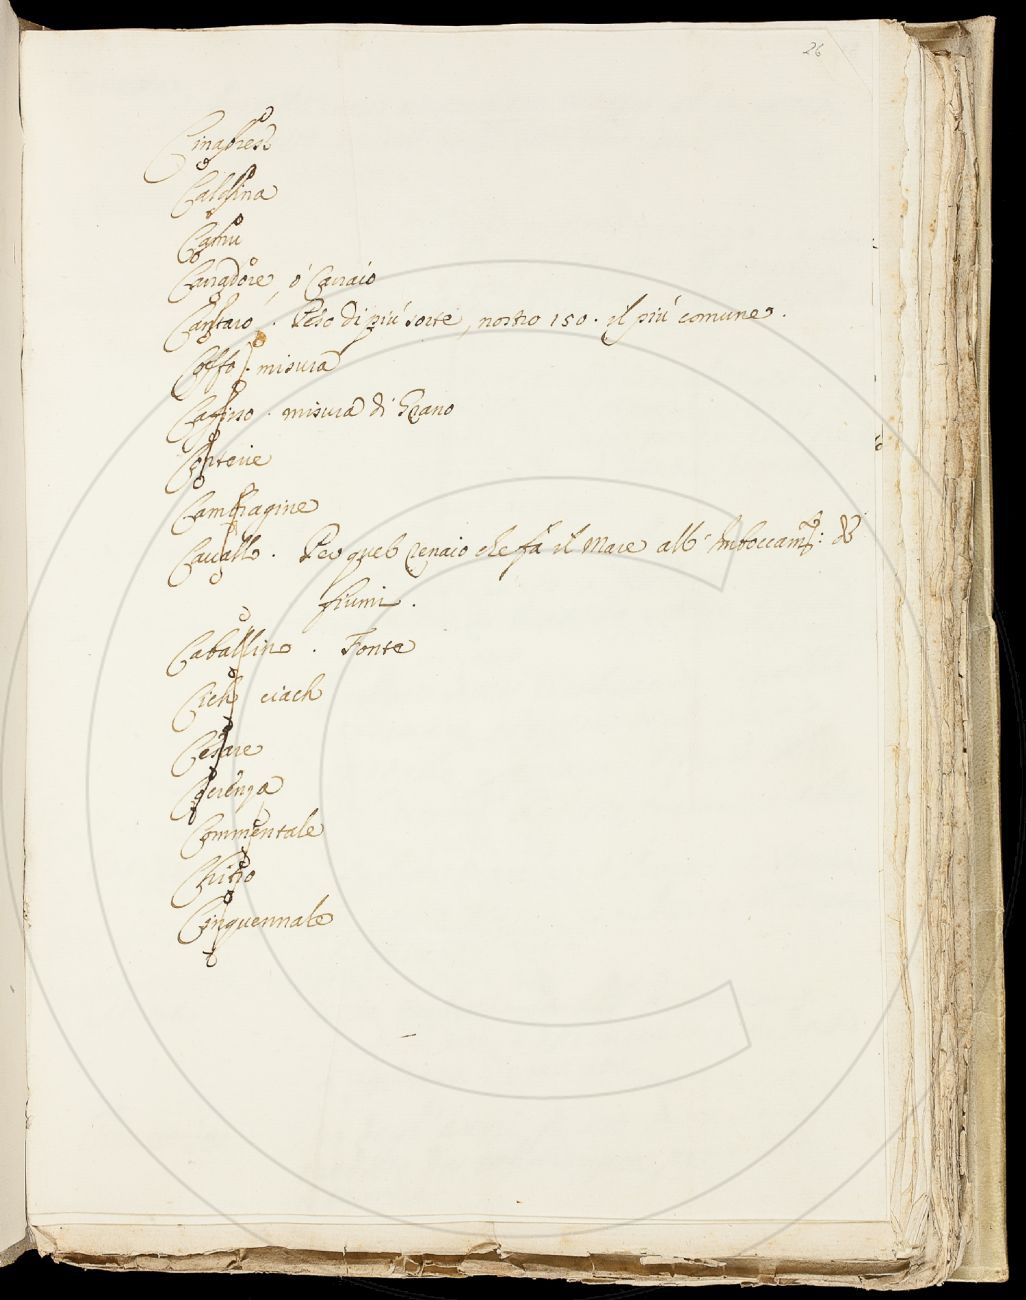 26
Cinabrese
Calesina
Cavadore, ó Cavaio
Cantaro. Peso di più sorte, nostro 150. il più comune.
Coffa. misura
Cafiso. misura di Grano
Conterie
Cambragine
Cavallo. Per quel Renaio che fa il Mare all' Imboccam.to: de
fiumi.
Caballino. Fonte
Cich ciach
Cesare
Cerenza
Commentale
Cinquennale